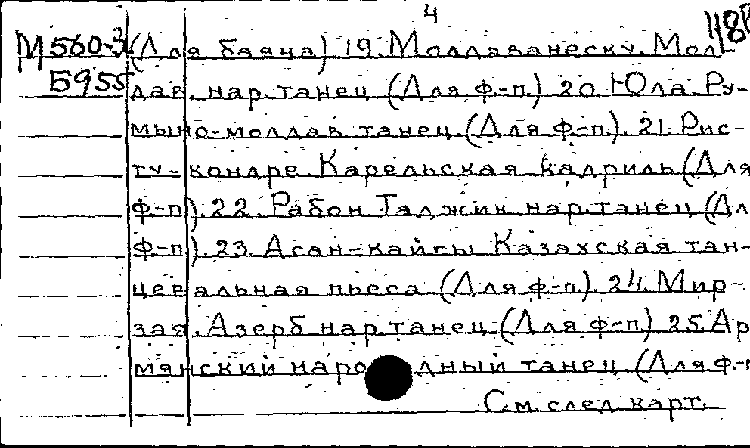 4 118
М 560-3 (Для баяна) 19. Молдаванеску. Мол-
5955 дав. нар. танец (Для ф-п.) 20. Юла. Ру-
мыно-молдав. танец. (Для ф-п.). 21. Рис-
ту-кондре. Карельская кадриль (Для
ф-п). 22. Рабон. Таджик. нар. танец (Дл
ф-п). 23. Асан-кайгы. Казахская тан-
цевальная пьеса (Для ф-п). 24. Мир-
зая. Азерб. нар. танец. (Для ф-п) 25. Ар
мянский народный танец (Для ф-п
См. след. карт.